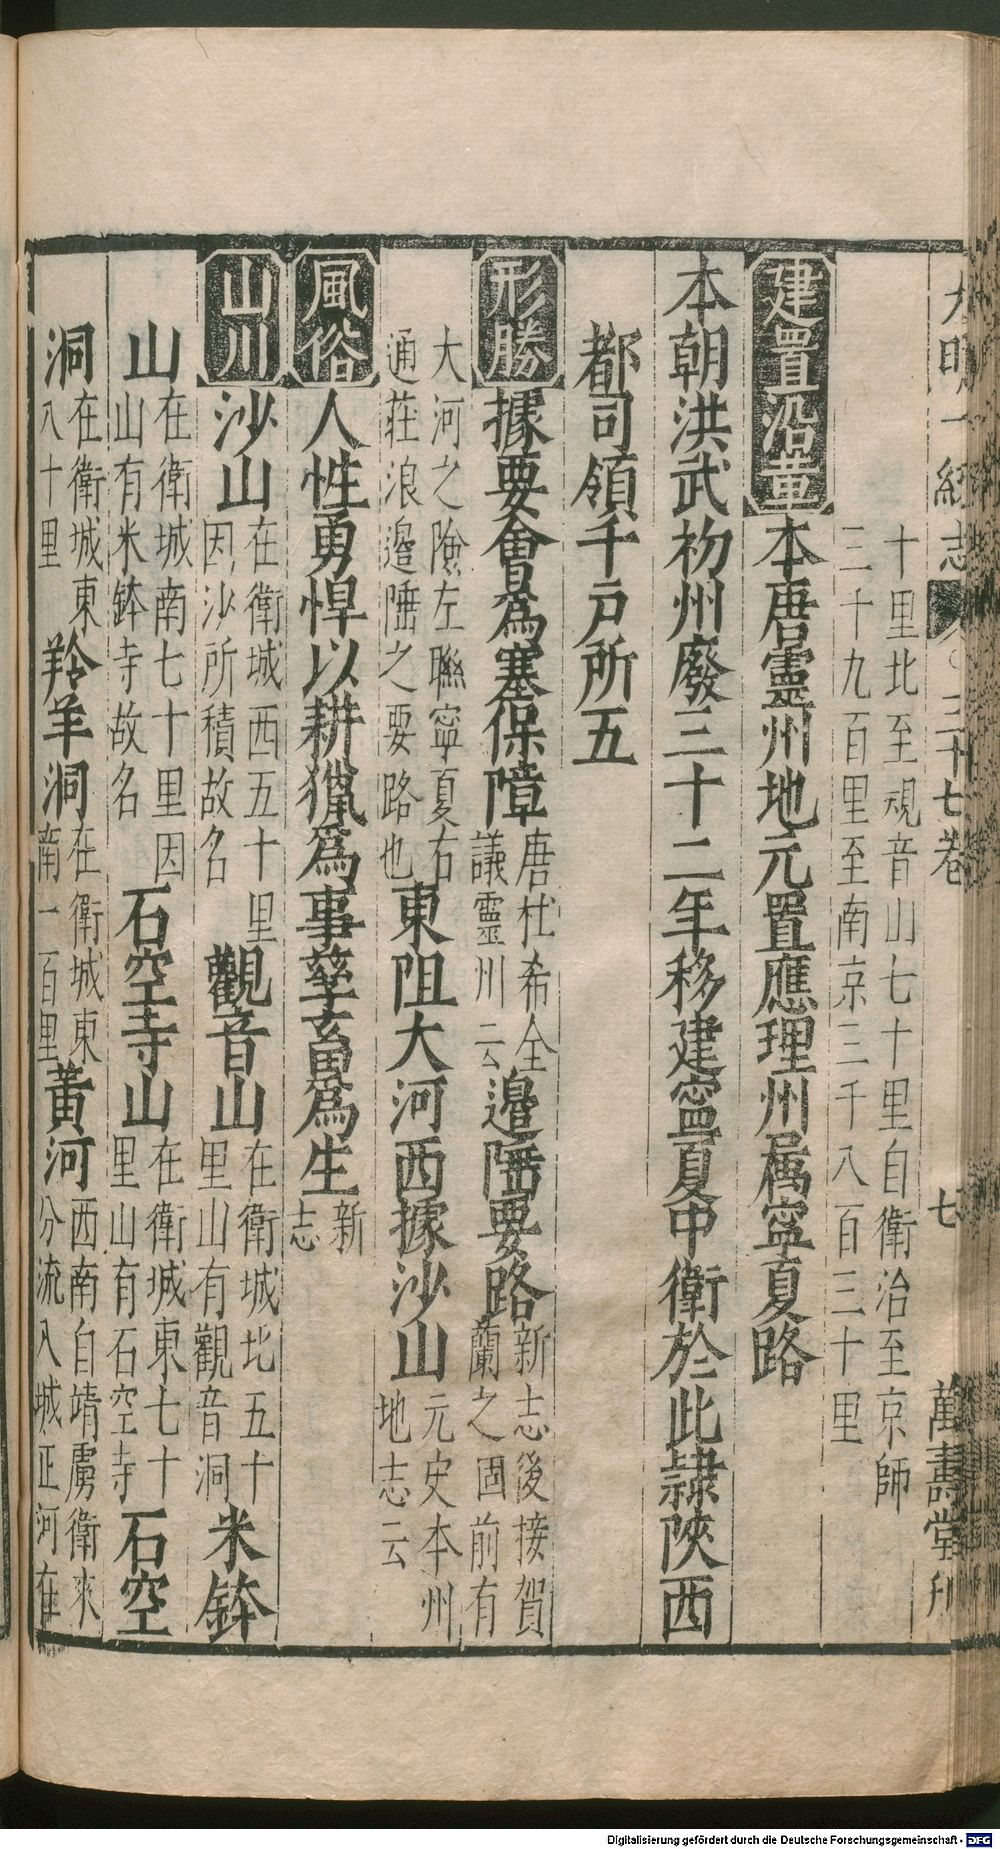 大明一統志 三十七卷 七 萬壽堂刊
十里北至視音山七十里自衛治至京師
三千九百里至南京三千八百三十里
建置沿革 本唐靈州地元置應理州属寧夏路
本朝洪武初州廢三十二年移建寧夏中衛於此隷陜西
都司領千戸所五
形勝 據要會爲塞保障 唐杜希全議靈州云 邊陲要路 新志後接賀蘭之固前有
大河之險左聯寧夏右通莊浪邉陲之要路也 東阻大河西據沙山 元史本州地志云
風俗 人性勇悍以耕獵爲事孳畜爲生 新志
山川 沙山 在衛城西五十里因沙所積故名 觀音山 在衛城北五十里山有觀音洞 米鉢
山 在衛城南七十里因山有米鉢寺故名 石空寺山 在衛城東七十里山有石空寺 石空
洞 在衛城東八十里 羚羊洞 在衛城東南一百里 黃河 西南自靖虜衛來分流入城正河在
Digitalisierung gefördert durch die Deutsche Forschungsgemeinschaft - DFG